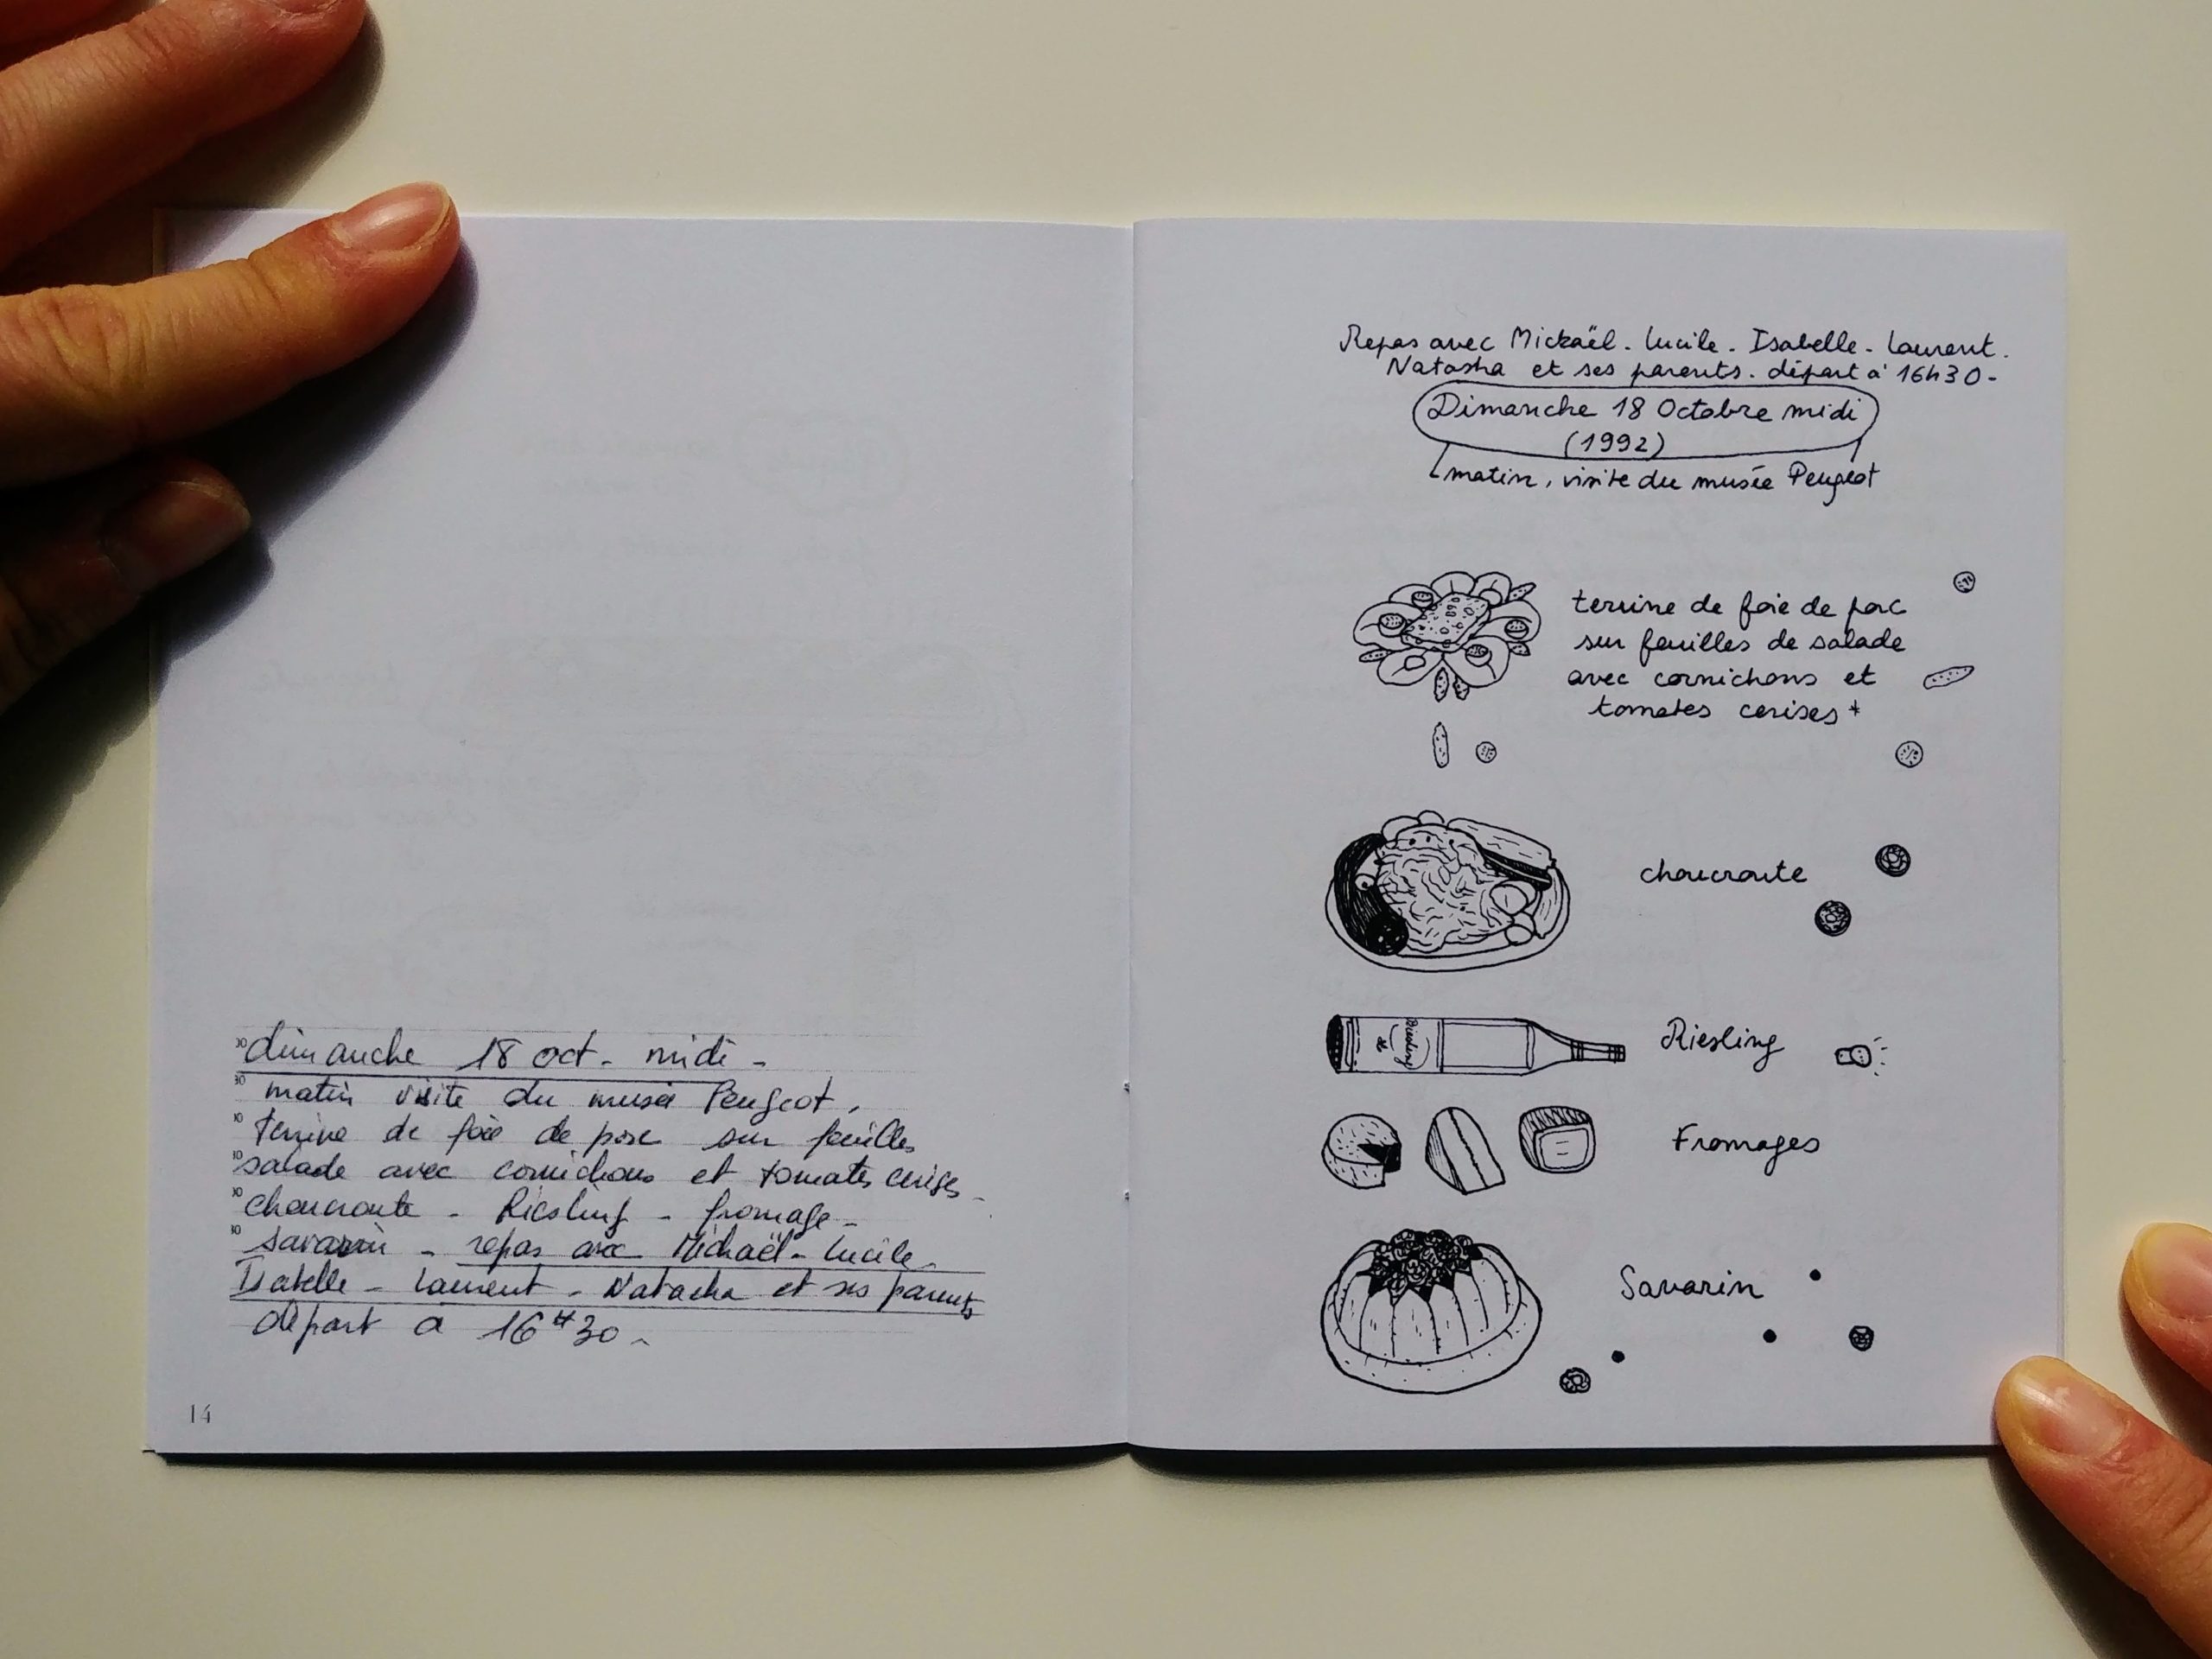 dimanche 18 oct. midi -
matin visite du musée Peugeot,
terrine de foie de porc sur feuilles
salade avec cornichons et tomates cerises -
choucroute - Riesling - fromage -
savarin - repas avec Michaël - Lucile -
Isabelle - Laurent - Natacha et ses parents
départ à 16H30 -
14
Repas avec Mickaël - Lucile - Isabelle - Laurent.
Natasha et ses parents. départ à 16h30 -
Dimanche 18 Octobre midi
(1992)
matin, visite du musée Peugeot
terrine de foie de porc
sur feuilles de salade
avec cornichons et
tomates cerises *
choucroute
Riesling
Riesling
Fromages
Savarin